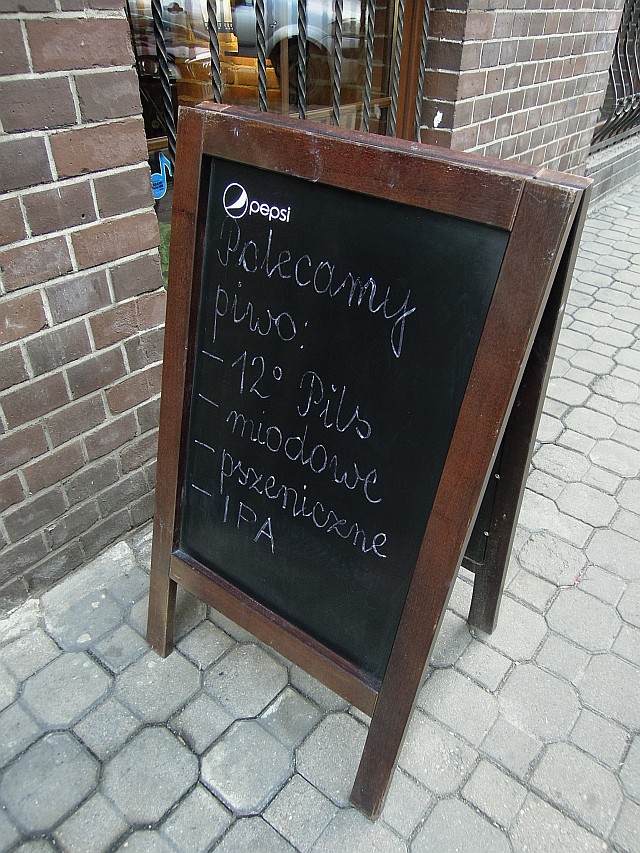 pepsi
Polecamy
piwo:
- 12° Pils
- miodowe
- pszeniczne
- IPA